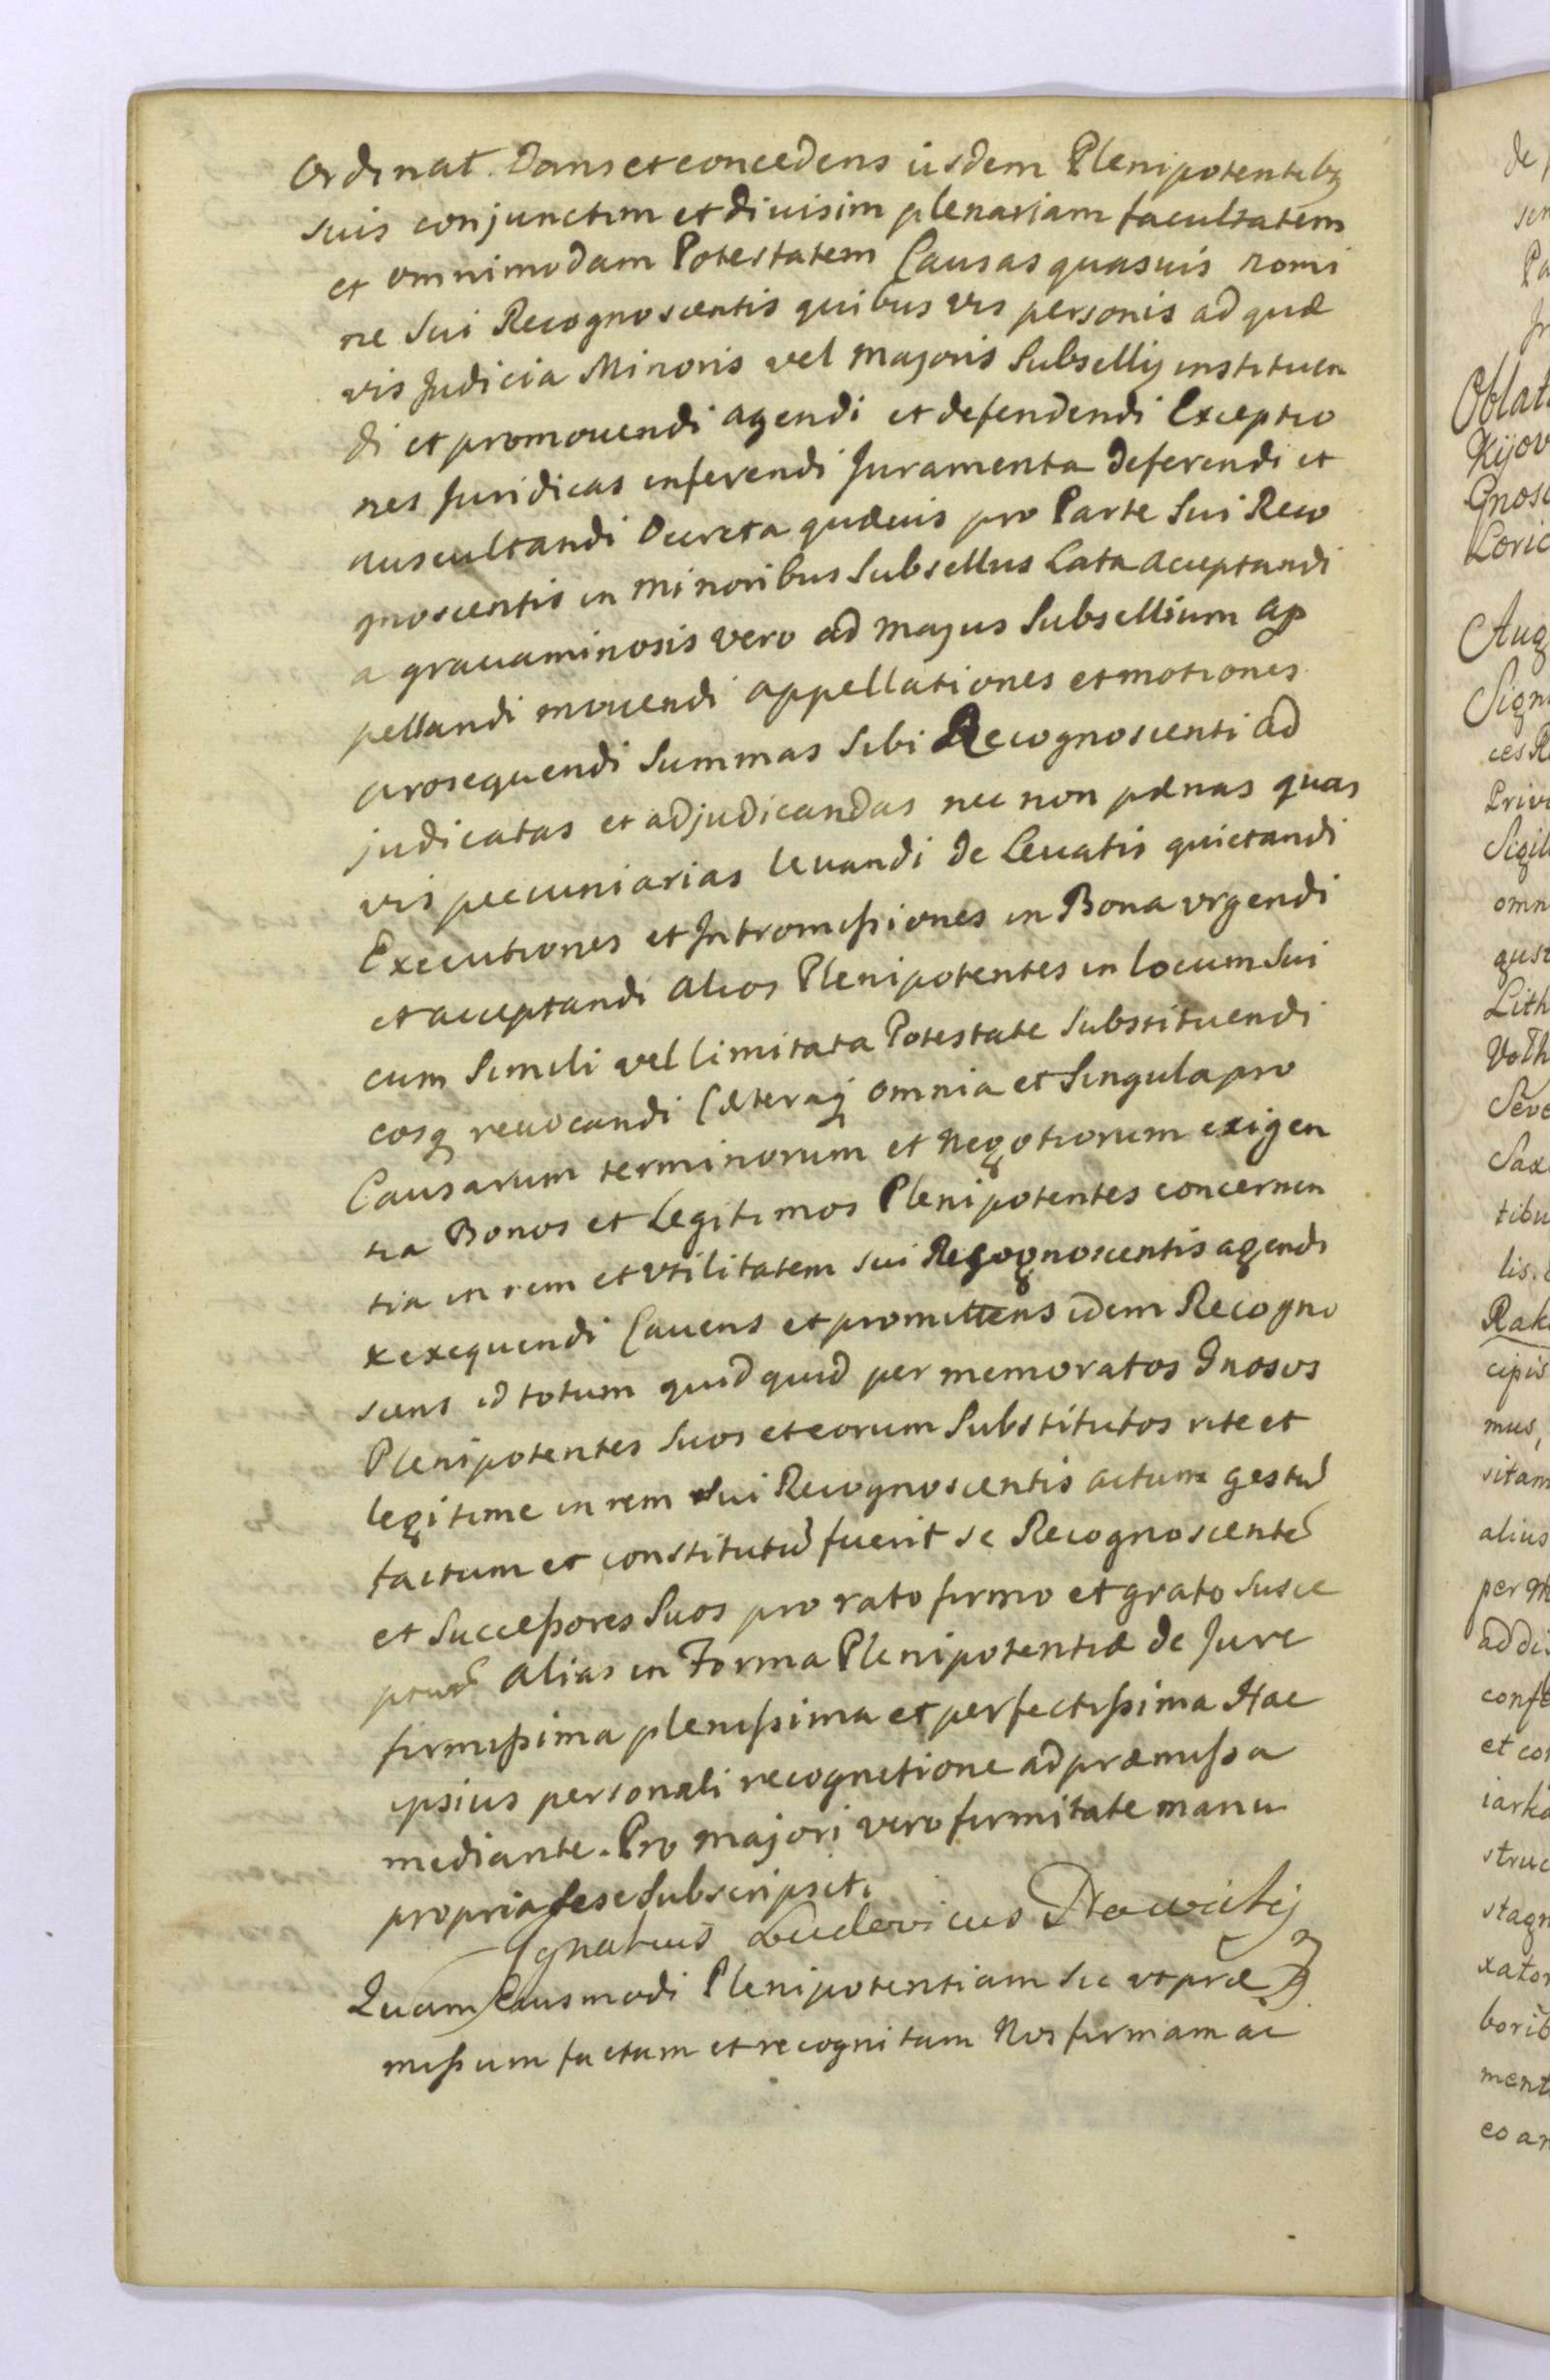 Ordinat. Dans et concedens iisdem Plenipotentibq
suis conjunctim et diuisim plenariam facultatem
et omnimodam Potestatem Causas quasuis nomi
ne Sui Recognoscentis quibus vis personis ad quæ
vis Judicia Minoris vel majoris Subsellij instituen
di et promouendi agendi et defendendi Exceptio
nes Juridicas inferendi Juramenta deferendi et
auscultandi Decreta quæuis pro Parte Sui Reco
gnoscentis in minoribus Subselliis Lata acceptandi
a grauaminosis vero ad majus Subsellium ap
pellandi mouendi appellationes et motiones
prosequendi Summas Sibi Recognoscenti ad
judicatas et adjudicandas nec non pænas quas
vis pecuniarias levandi de Levatis quietandi
Executiones et Intromißiones in Bona vrgendi
et acceptandi alios Plenipotentes in locum Sui
cum Simili vel limitata Potestate Substituendi
eosq revocandi Cæteraq omnia et Singula pro
Causarum terminorum et negotiorum exigen
tia Bonos et Legitimos Plenipotentes concernen
tia in rem et Vtilitatem sui Recognoscentis agendi
xexequendi Cauens et promittens idem Recogno
scens id totum quidquid per memoratos Gnosos
Plenipotentes Suos et eorum Substitutos rite et
legitime in rem Sui Recognoscentis actum gestū
factum et constitutū fuerit se Recognoscentē
et Succeßores Suos pro rato firmo et grato susce
pturū alias in Forma Plenipotentiæ de Jure
firmißima plenißima et perfectißima Hac
ipsius personali recognitione ad præmißa
mediante. Pro majori vero firmitate manu
propria sese Subscripsit.
Ignatius Ludovicus
Quam Eiusmodi Plenipotentiam sic vt præ
mißum factam et recognitam Nos firmam ac
de
Pa
Oblat
Kijov
Gnosc
Loric
Aug
Sign
ces R
Privi
Sigil
omn
gust
Lith
Volh
Seve
Sax
tibu
lis
Rak
cipis
mus,
sitam
alius
per M
ad di
confe
et co
iarka
struc
stagn
xator
borib
ment
eo an